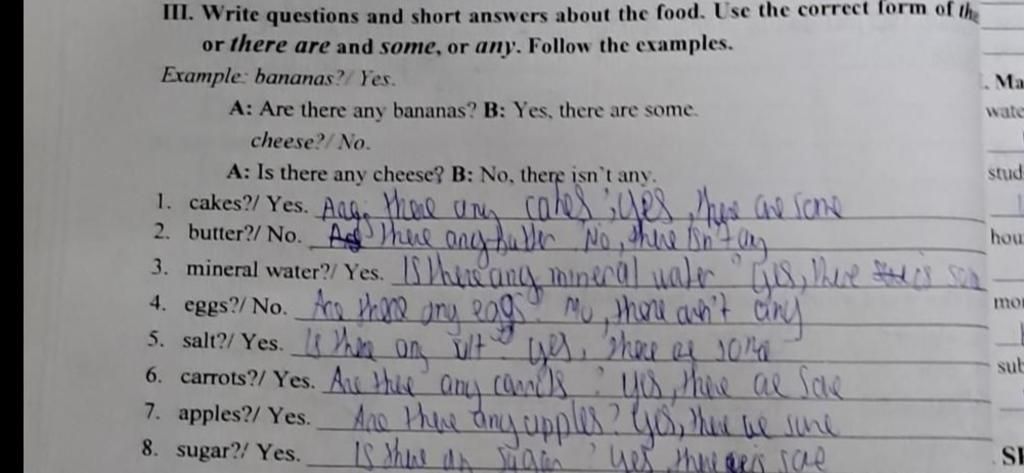 III. Write questions and short answers about the food. Use the correct form of the
or there are and some, or any. Follow the examples.
Example: bananas?/ Yes.
A: Are there any bananas? B: Yes, there are some.
cheese?/ No.
A: Is there any cheese? B: No, there isn't any.
1. cakes?/ Yes. there any cakes ; yes, there are some
2. butter?/ No. there any butter No, there isn't any
3. mineral water?/ Yes. Is there any mineral water ? yes, there is
4. eggs?/ No. Are there any eggs No, there aren't any
5. salt?/ Yes. Is there any yes, there
6. carrots?/ Yes. Are there any carrots ? yes, there
7. apples?/ Yes. Are there any apples? yes, there
8. sugar?/ Yes. Is there sugar ? yes there is
Ma
wate
stud
hou
mor
sub
SI